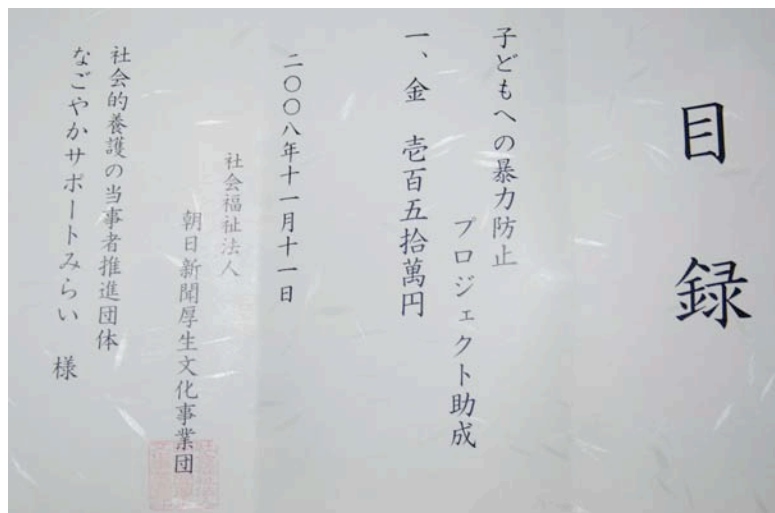 目録
子どもへの暴力防止
プロジェクト助成
一、金　壱百五拾萬円
二〇〇八年十一月十一日
社会福祉法人
朝日新聞厚生文化事業団
社会的養護の当事者推進団体
なごやかサポートみらい　様